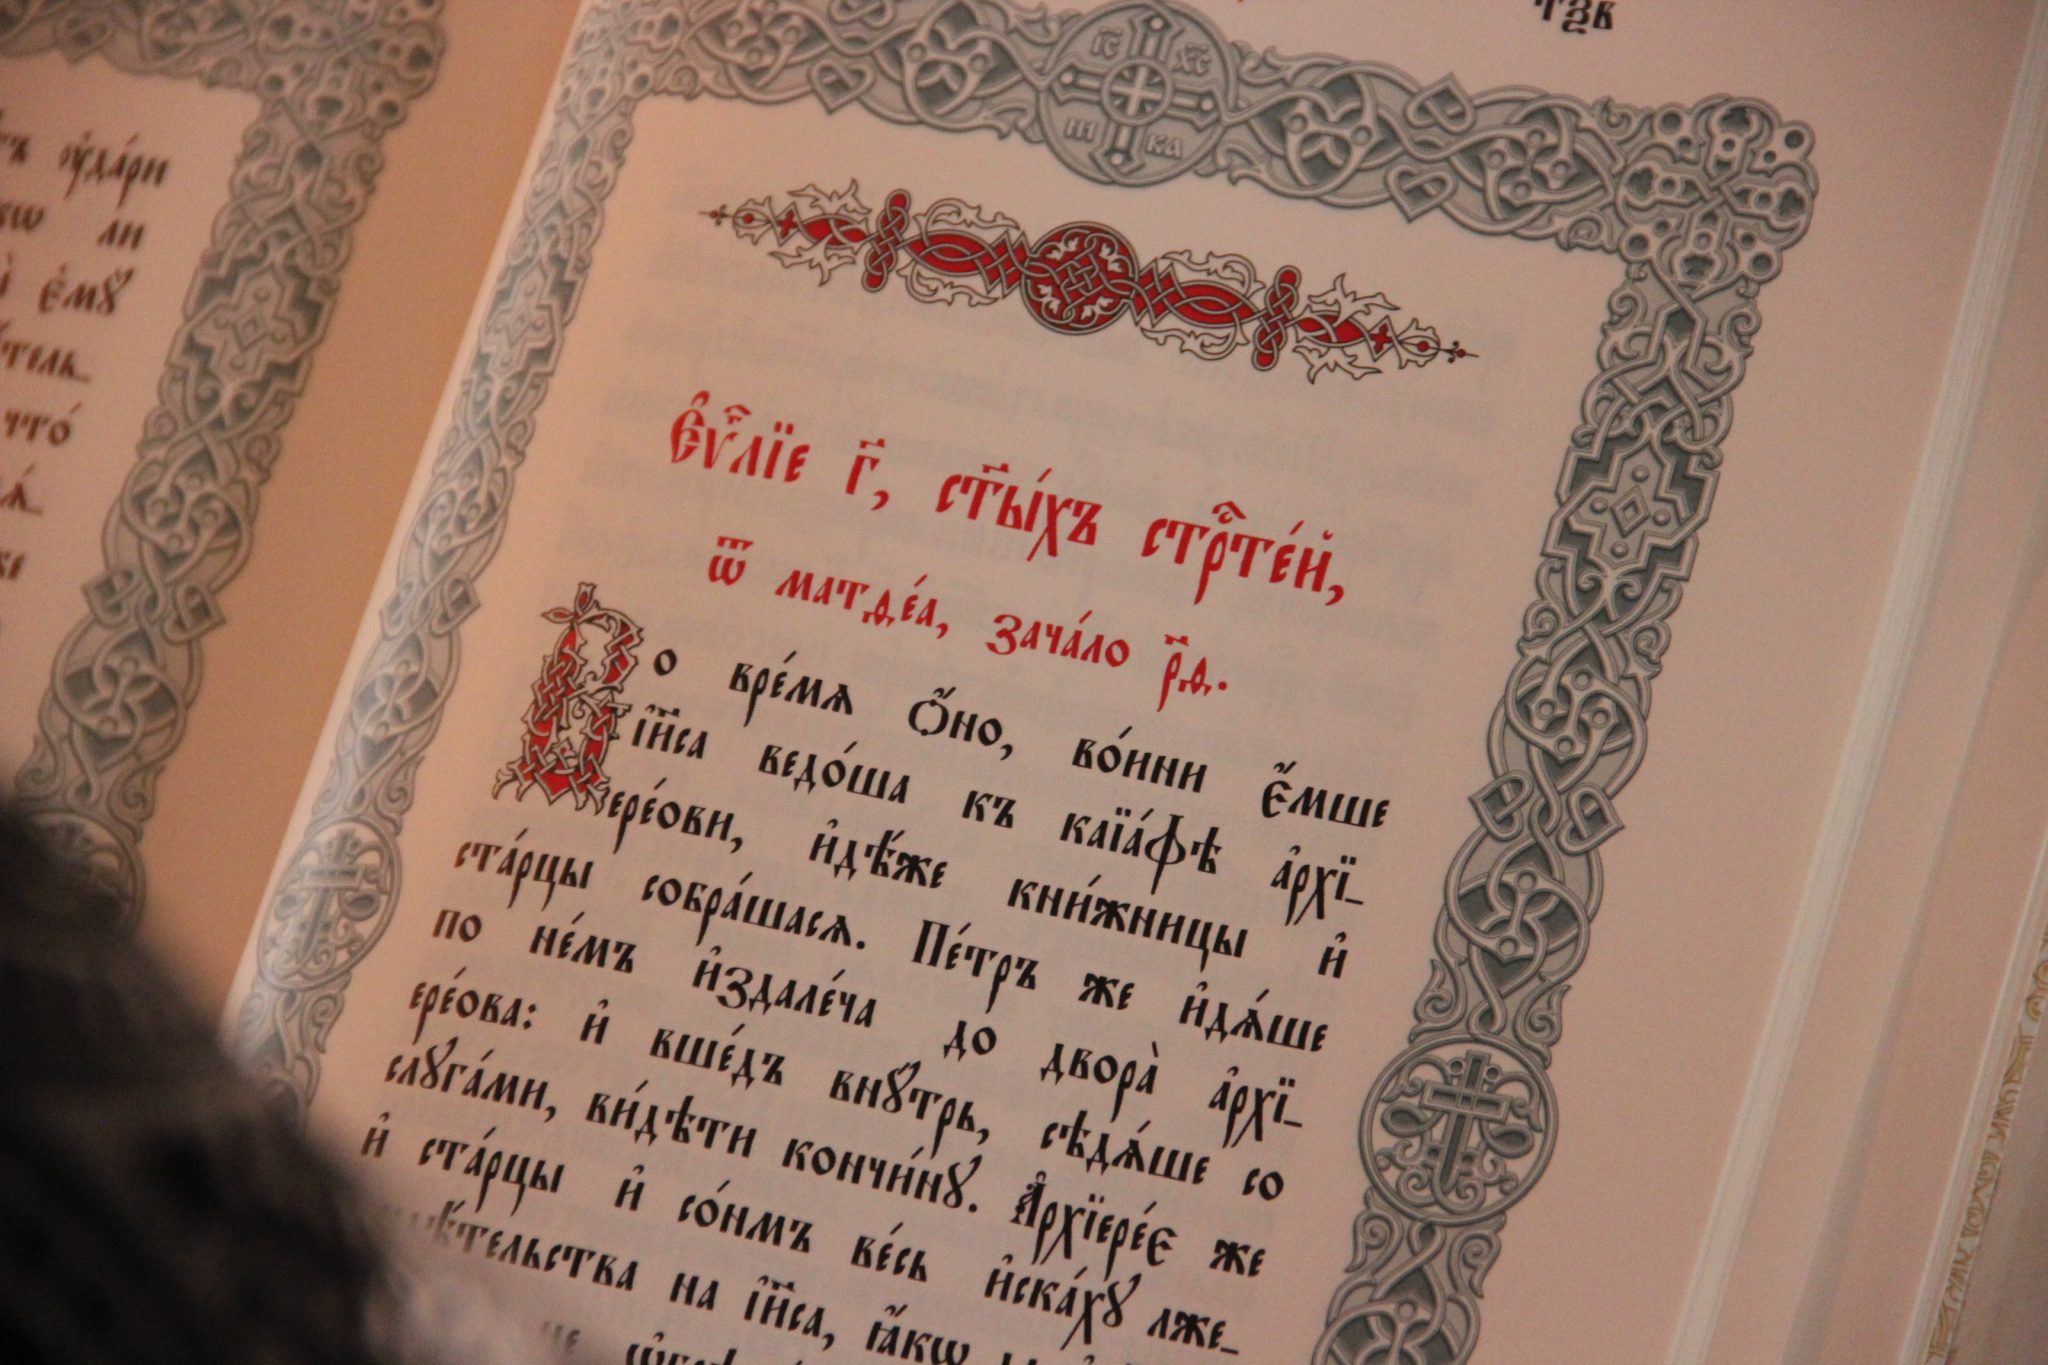 оу҆да́ри
ли
є҆мꙋ̀
что́
тѕ҃в
і҆с хс
ни ка
Є҆ѵⷢ҇лїе г҃, ст҃ы́хъ стрⷭ҇те́й,
ѿ матѳе́а, зача́ло р҃ѳ.
Во вре́мѧ ѻ҆́но, во́ини є҆́мше
і҆и҃са ведо́ша къ каїа́фѣ а҆рхї_
ере́ови, и҆дѣ́же кни́жницы и҆
ста́рцы собра́шасѧ. Пе́тръ же и҆дѧ́ше
по не́мъ и҆здале́ча до двора̀ а҆рхї_
ере́ова: и҆ вше́дъ внꙋ́трь, сѣдѧ́ше со
слꙋга́ми, ви́дѣти кончи́нꙋ. А҆рхїере́є же
и҆ ста́рцы и҆ со́нмъ ве́сь и҆ска́хꙋ лже_
на і҆и҃са, ꙗ҆́кѡ